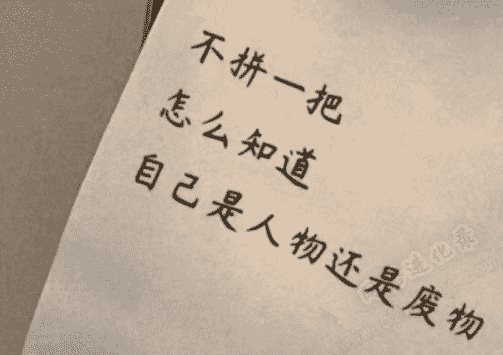 不拼一把
怎么知道
自己是人物还是废物